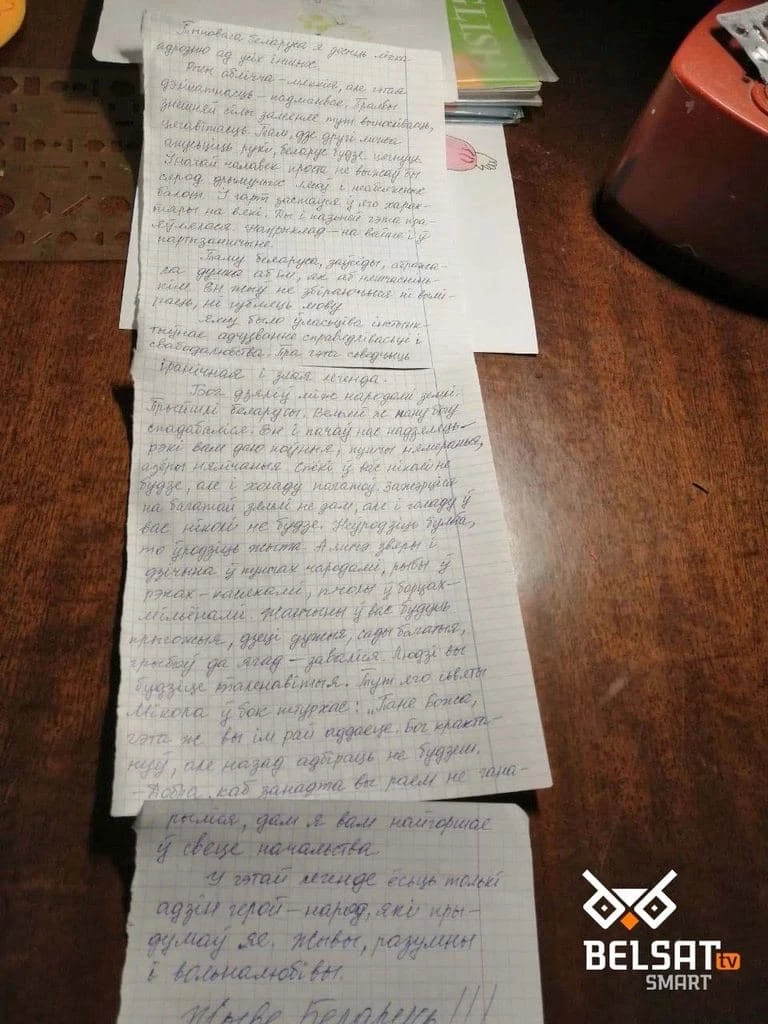 Тыповага беларуса я досыць лёгка
адрозню ад усіх іншых.
Рысы аблічча – мяккія, але гэтая
далікатнасць – падманвае. Праявы
знешняй сілы замяняе тут вынослівасць,
цягавітасць. Там, дзе другі можа
апусціць рукі, беларус будзе цягнуць.
Іначай чалавек проста не выжаў бы
сярод дрымучых лясоў і неабсяжных
балот. І гарт застаўся ў яго харак-
тары на вякі. Ды і пазней гэта пра-
яўлялася. Напрыклад – на вайне і ў
партызаншчыне.
Таму беларуса, заўсёды, абража-
ла думка аб ім, як аб няшчаснень-
кім. Ён жыў не збіраючыся ні вымі-
раць, ні губляць мову.
Яму было ўласціва інстынк-
тыўнае адчуванне справядлівасці і
свабодалюбства. Пра гэта сведчыць
іранічная і злая легенда.
Бог дзяліў між народамі землі.
Прыйшлі беларусы. Вельмі ж яны богу
спадабаліся. Ён і пачаў нас надзяляць –
рэкі вам даю поўныя, пушчы нямераныя,
азёры нялічаныя. Спёкі ў вас ніколі не
будзе, але і холаду
на багатай зямлі не дам, але і голаду ў
вас ніколі не будзе. Неўродзіць бульба,
то ўродзіць жыта. А яшчэ звяры і
дзічына ў пушчах чародамі, рыбы ў
рэках – касякамі, пчолы ў борцях –
мільёнамі. Жанчыны ў вас будуць
прыгожыя, дзеці дужыя, сады багатыя,
грыбоў да ягад – заваліся. Людзі вы
будзіце таленавітыя. Тут яго сьвяты
Мікола ў бок штурхае: „Пане Божа,
гэта ж вы ім рай аддаеце. Бог кракта-
нуў, але назад адбіраць не будзеш.
– Добра, каб занадта вы раем не гана-
рыліся, дам я вам найгоршае
ў свеце начальства
У гэтай легендзе ёсць толькі
адзін герой – народ, які пры-
думаў яе. Жывы, разумны
і вольналюбівы.
Жыве Беларусь!!!
BELSAT tv
SMART